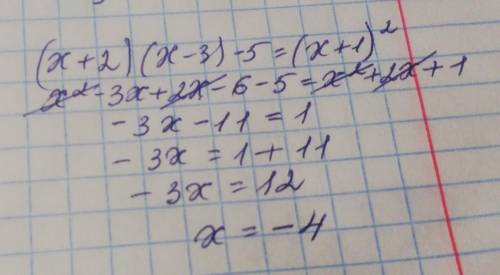 (x+2)(x-3)-5=(x+1)²
x²-3x+2x-6-5=x²+2x+1
-3x-11=1
-3x=1+11
-3x=12
x=-4